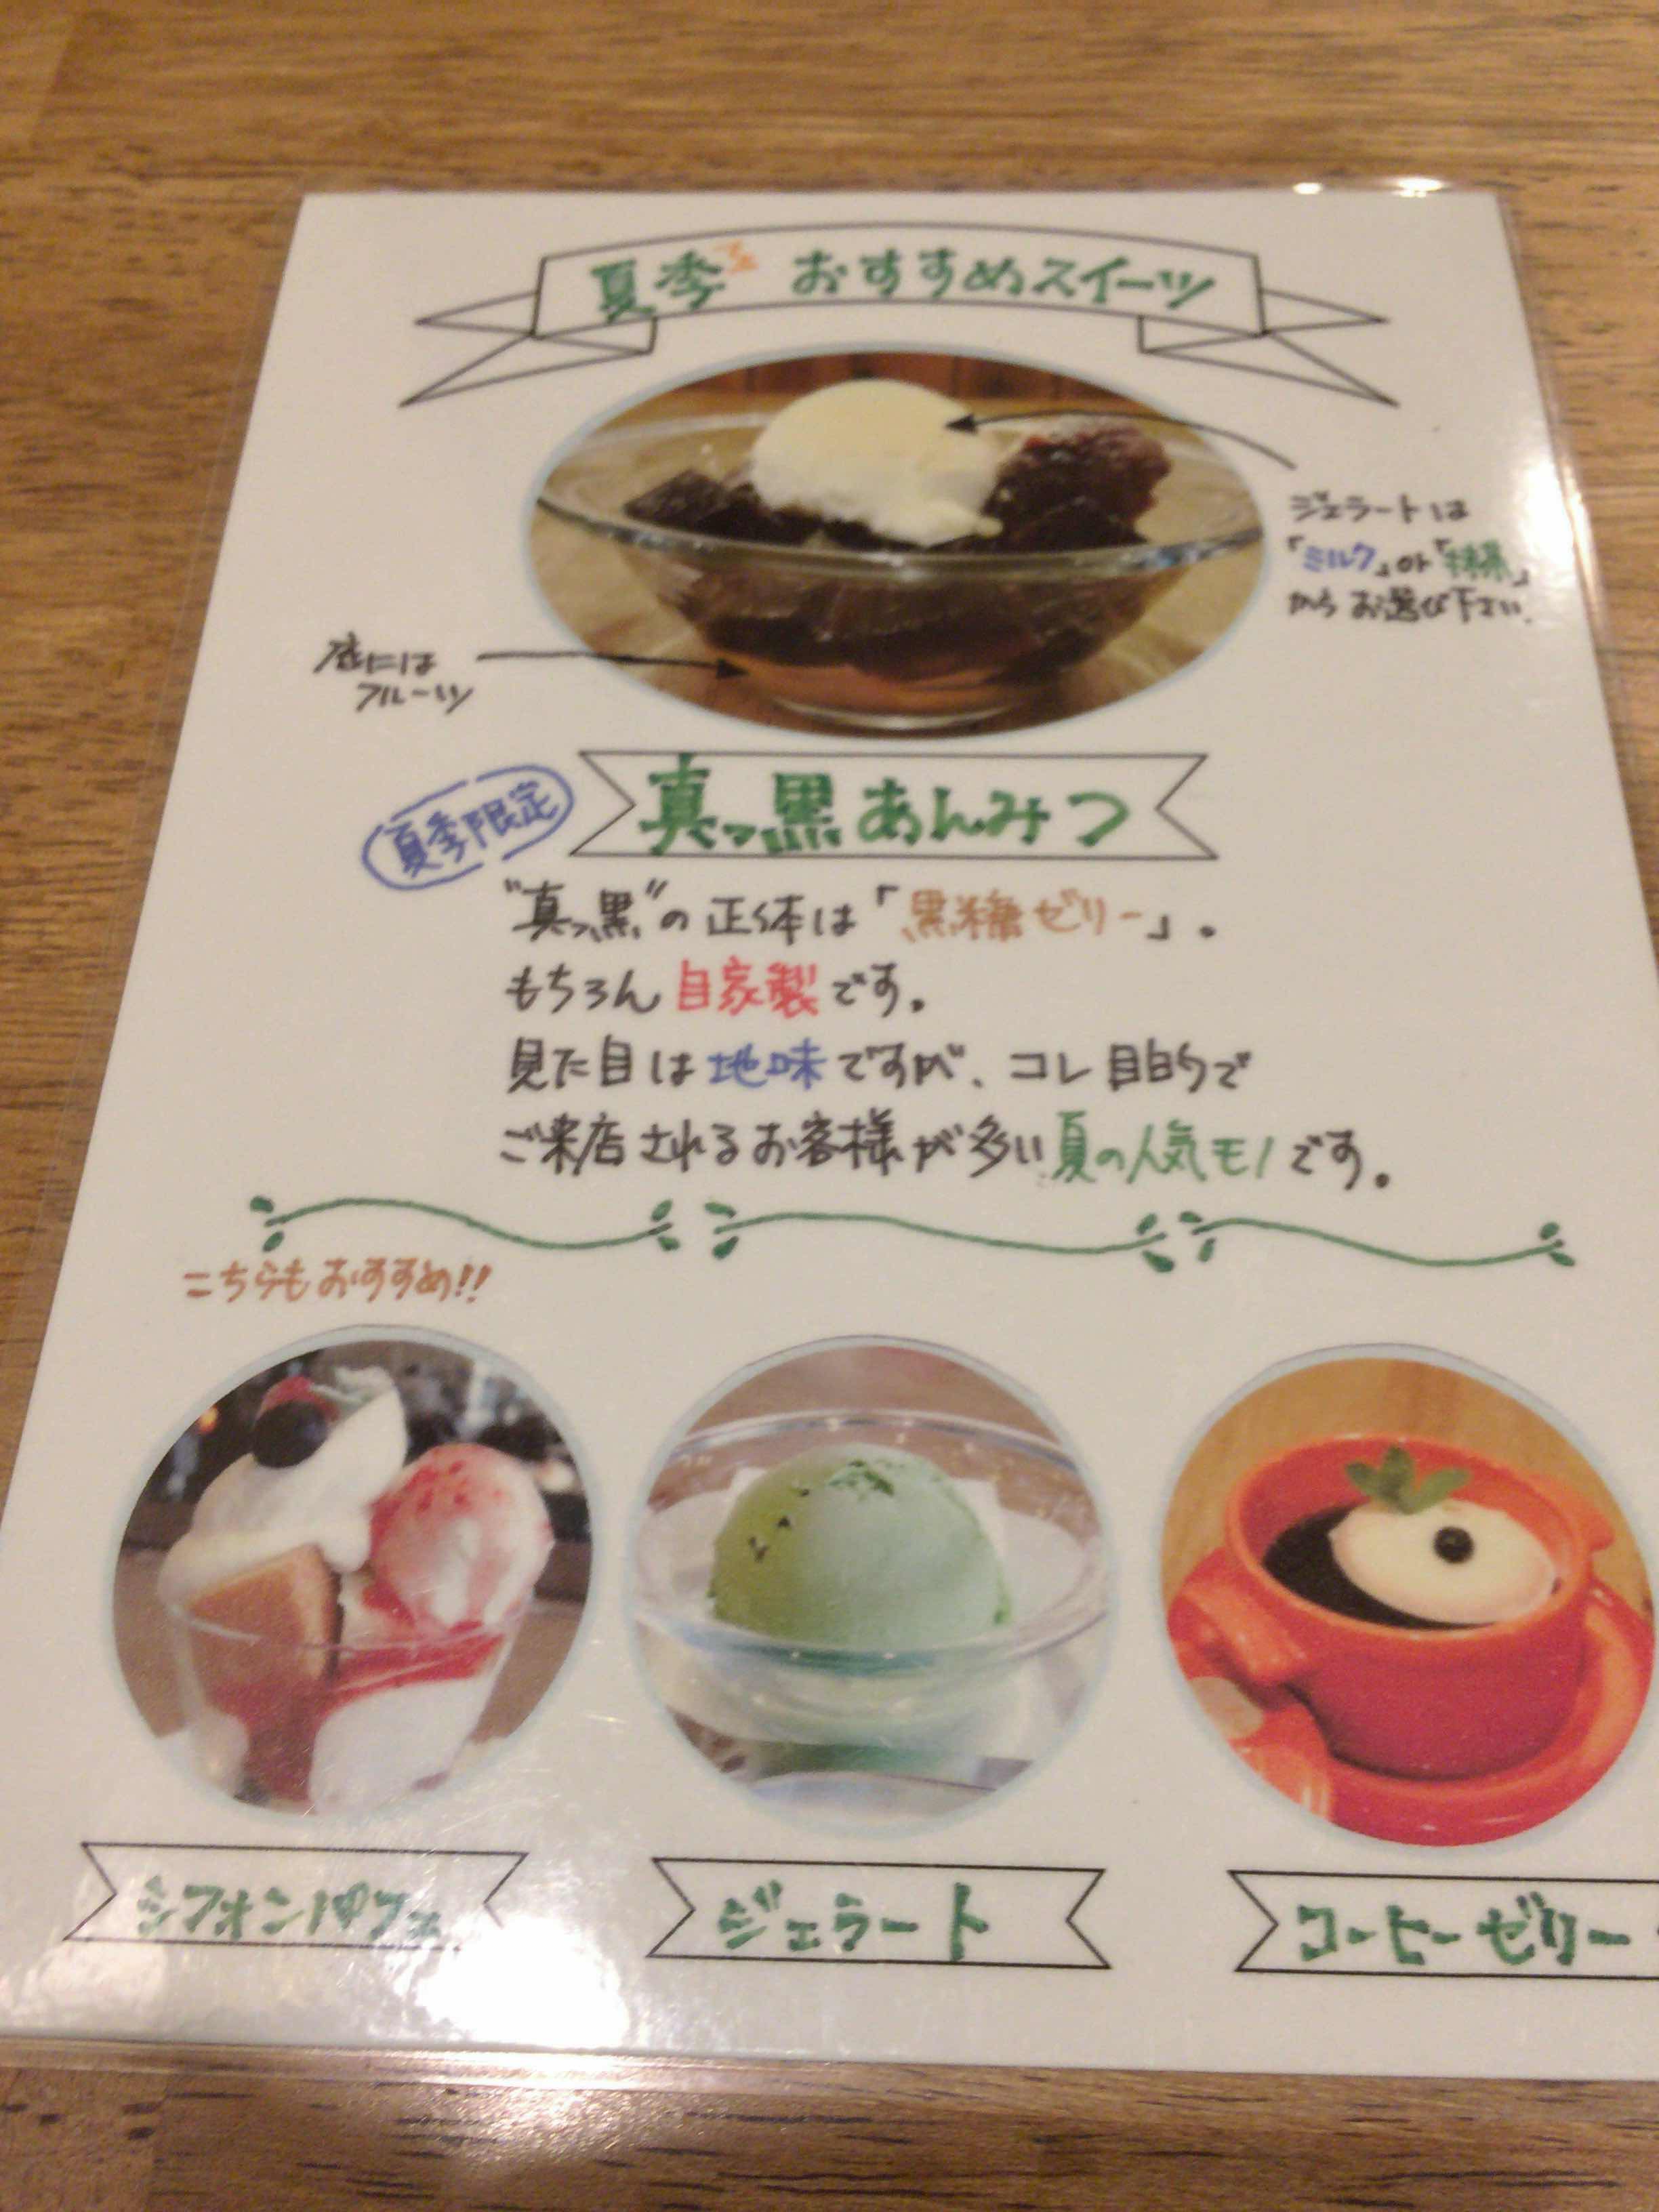 夏季 おすすめスイーツ
ジェラートは
「ミルク」or「抹茶」
からお選び下さい.
底には
フルーツ
夏季限定
真っ黒あんみつ
"真っ黒"の正体は「黒糖ゼリー」。
もちろん自家製です。
見た目は地味ですが、コレ目的で
ご来店されるお客様が多い夏の人気モノです。
こちらもおすすめ!!
シフォンパフェ
ジェラート
コーヒーゼリー